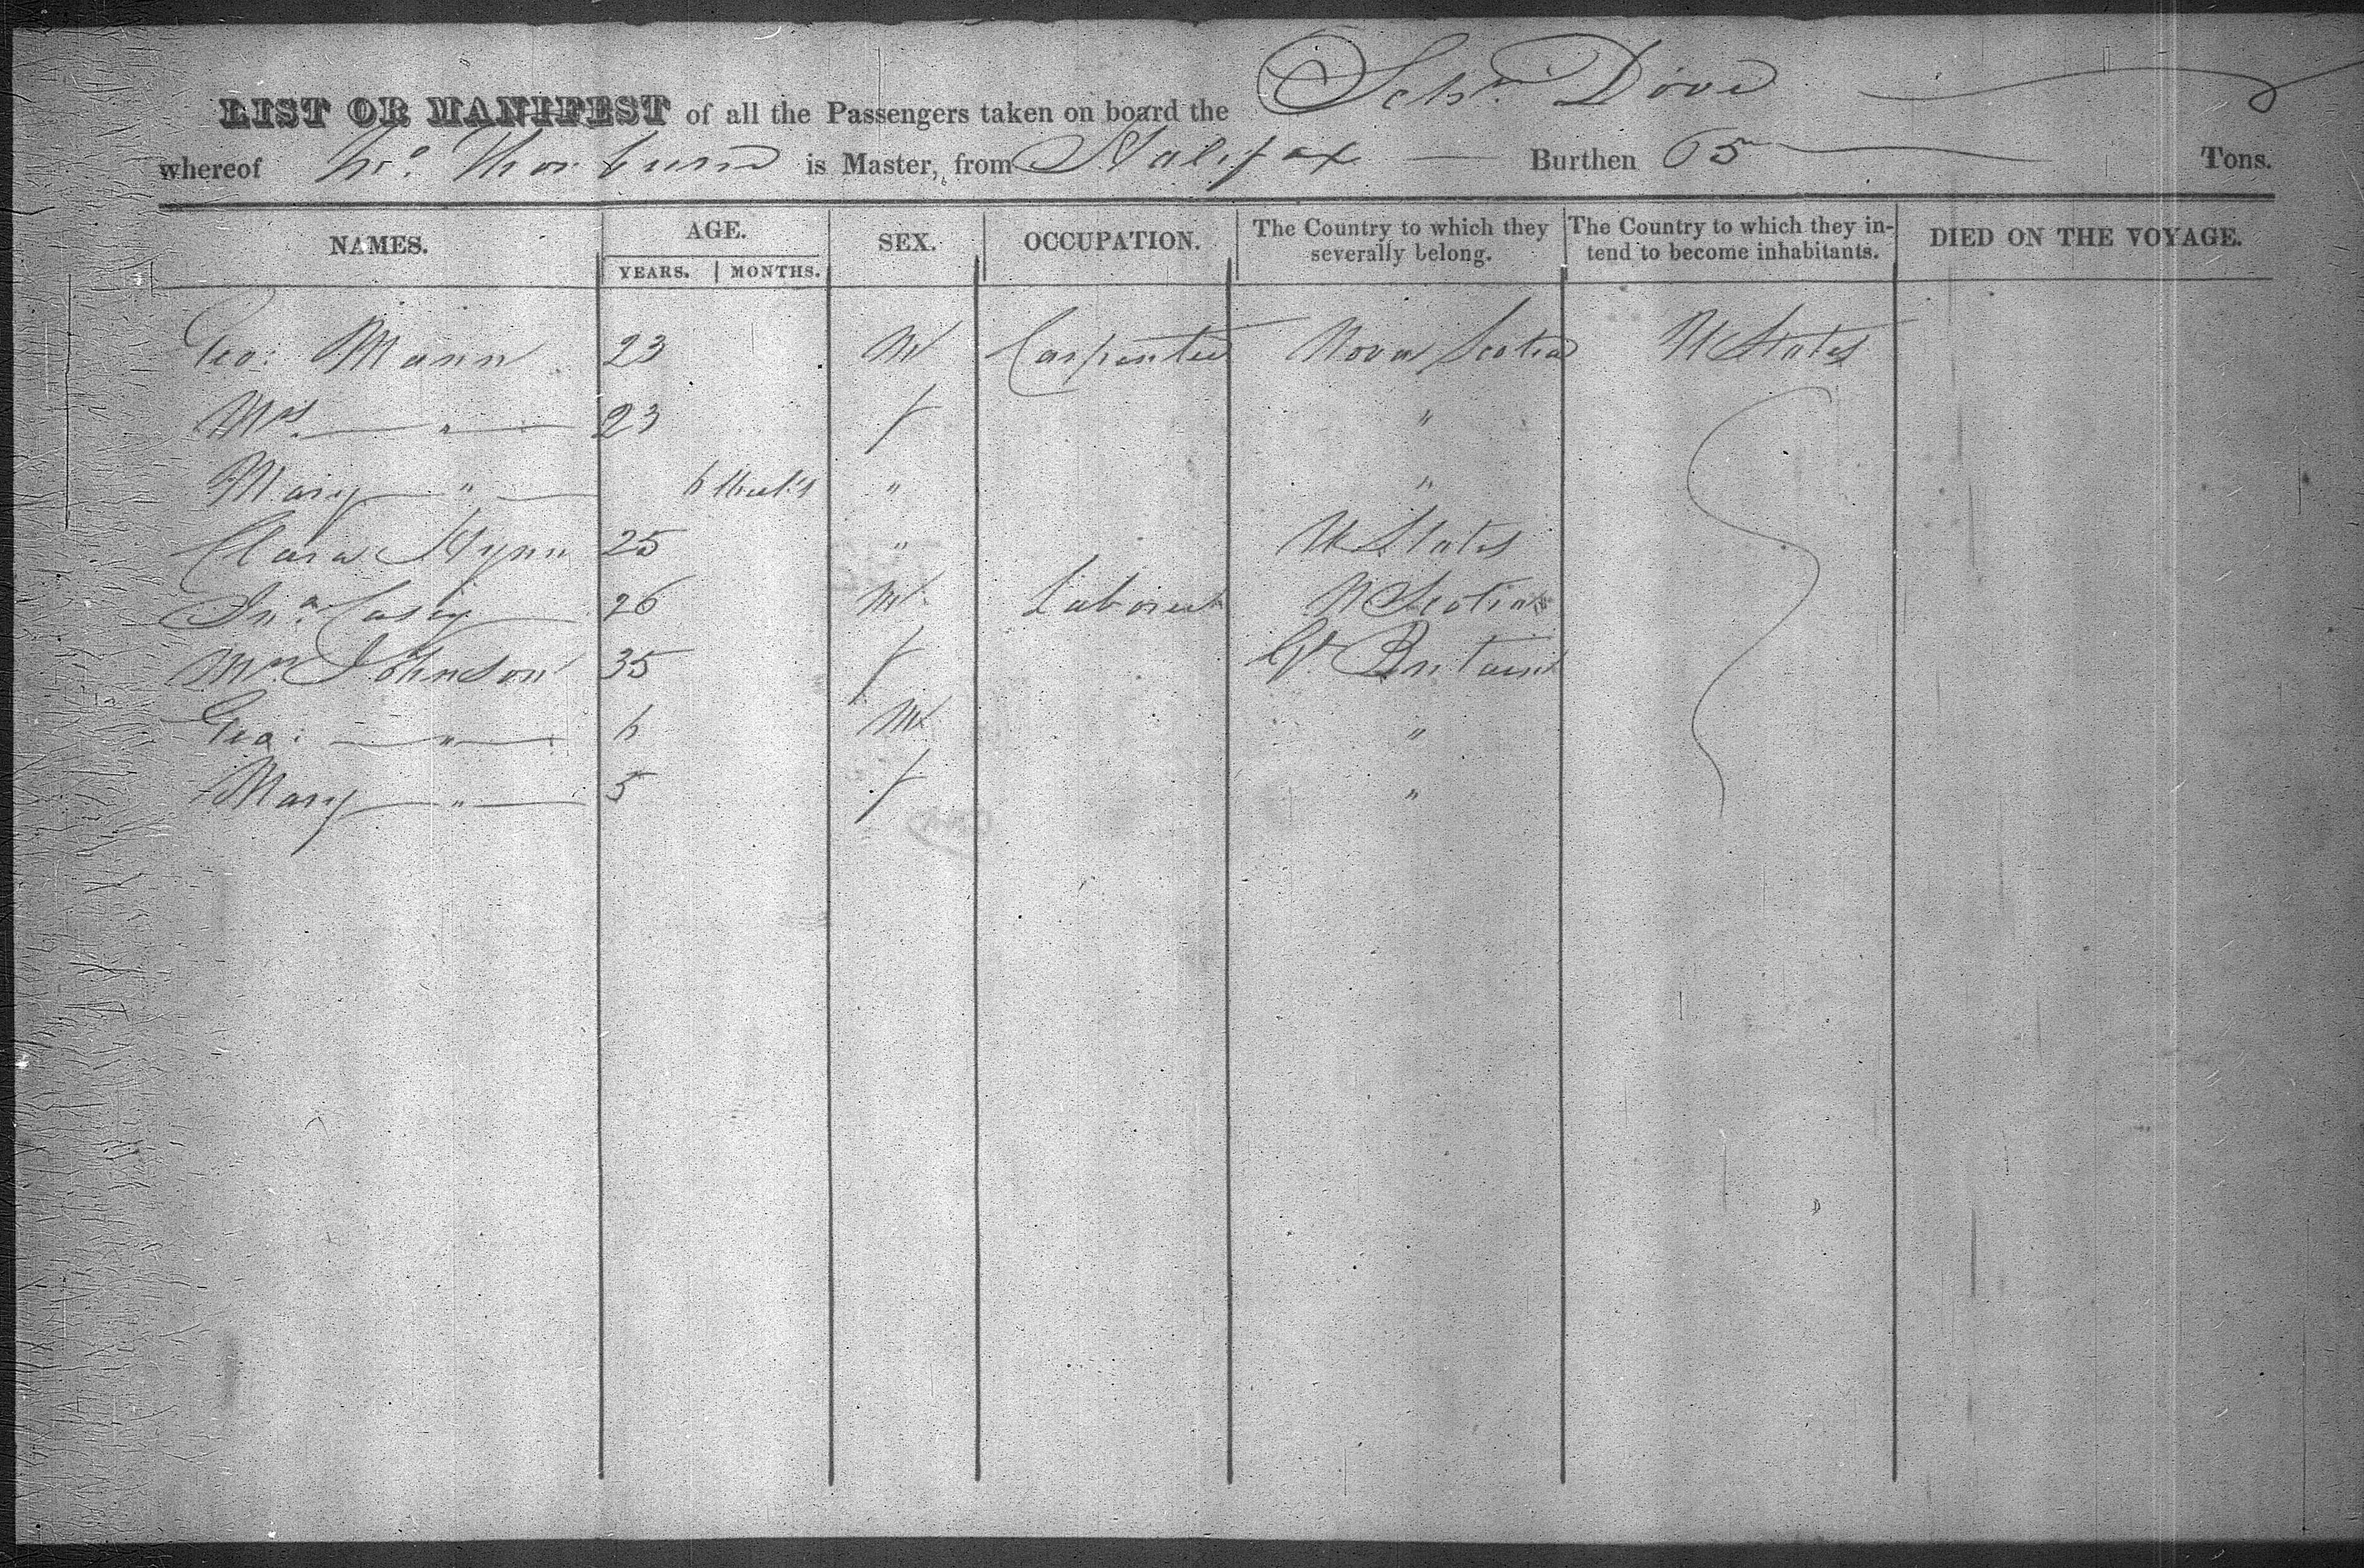 LIST OR MANIFEST of all the Passengers taken on board the Schr. Dove
whereof Thorburn is Master, from Halifax Burthen 65 Tons.
NAMES. AGE. SEX. OCCUPATION. The Country to which they severally belong. The Country to which they intend to become inhabitants. DIED ON THE VOYAGE.
YEARS. MONTHS.
Geo: Mann 23 M Carpenter Nova Scotia U States
Mrs. " 23 f "
Mary " 6 " "
Clara 25 " U States
Casey 26 M Laborer N Scotia
Mrs. Johnson 35 f Gt. Britain
Geo: " 6 M "
Mary " 5 f "